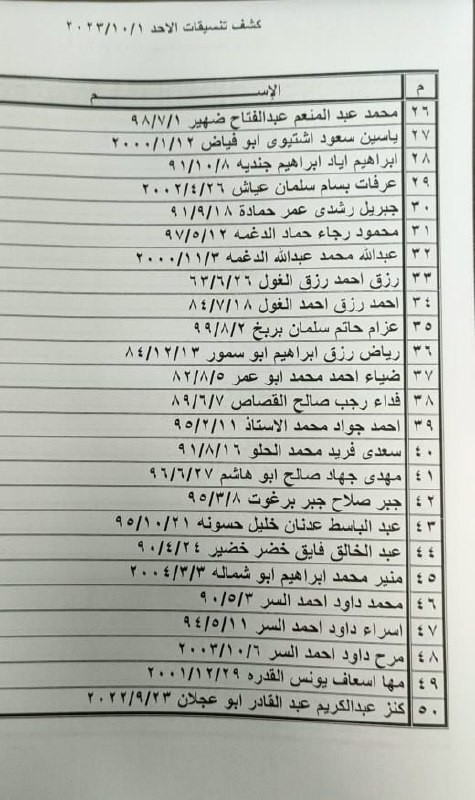 كشف تنسيقات الاحد ٢٠٢٣/١٠/١
م الإســـــــــــم
٢٦ محمد عبد المنعم عبدالفتاح ضهير ٩٨/٧/١
٢٧ ياسين سعود اشتيوى ابو فياض ٢٠٠٠/١/١٢
٢٨ ابراهيم اياد ابراهيم جنديه ٩١/١٠/٨
٢٩ عرفات بسام سلمان عياش ٢٠٠٢/٤/٢٦
٣٠ جبريل رشدى عمر حمادة ٩١/٩/١٨
٣١ محمود رجاء حماد الدغمه ٩٧/٥/١٢
٣٢ عبدالله محمد عبدالله الدغمه ٢٠٠٠/١١/٣
٣٣ رزق احمد رزق الغول ٦٣/٦/٢٦
٣٤ احمد رزق احمد الغول ٨٤/٧/١٨
٣٥ عزام حاتم سلمان بريخ ٩٩/٨/٢
٣٦ رياض رزق ابراهيم ابو سمور ٨٤/١٢/١٣
٣٧ ضياء احمد محمد ابو عمر ٨٢/٨/٥
٣٨ فداء رجب صالح القصاص ٨٩/٦/٧
٣٩ احمد جواد محمد الاستاذ ٩٥/٢/١١
٤٠ سعدى فريد محمد الحلو ٩١/٨/١٦
٤١ مهدى جهاد صالح ابو هاشم ٩٦/٦/٢٧
٤٢ جبر صلاح جبر برغوت ٩٥/٣/٨
٤٣ عبد الباسط عدنان خليل حسونه ٩٥/١٠/٢١
٤٤ عبد الخالق فايق خضر خضير ٩٠/٤/٢٤
٤٥ منير محمد ابراهيم ابو شماله ٢٠٠٤/٣/٣
٤٦ محمد داود احمد السر ٩٠/٥/٣
٤٧ اسراء داود احمد السر ٩٤/٥/١١
٤٨ مرح داود احمد السر ٢٠٠٣/١٠/٦
٤٩ مها اسعاف يونس القدره ٢٠٠١/١٢/٢٩
٥٠ كنز عبدالكريم عبد القادر ابو عجلان ٢٠٢٢/٩/٢٣